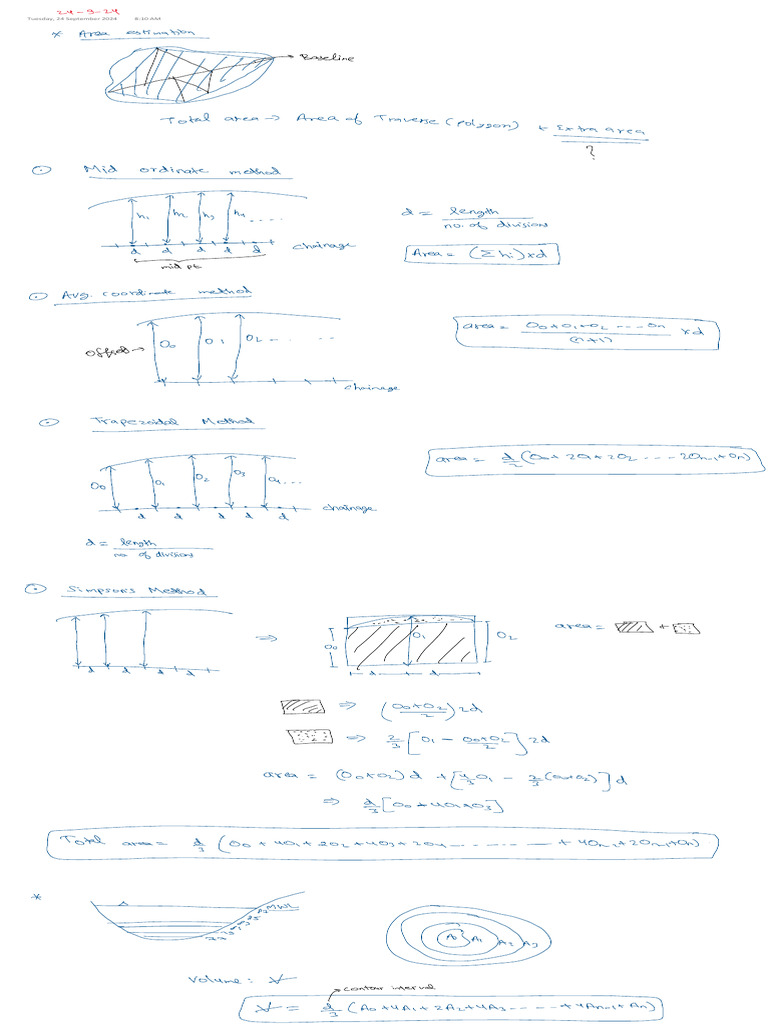 24-9-24
Tuesday, 24 September 2024 8:10 AM
* Area estimation
Baseline
Total area → Area of Traverse (polygon) + Extra area
?
Mid ordinate method
h₁ h₂ h₃ h₄ ....
d d d d d
chainage
mid pt.
d = length / no. of divisions
Area = (Σhi)×d
Avg. coordinate method
Offset → O₀ O₁ O₂ - . . .
chainage
area = O₀+O₁+O₂ ..... On / (n+1) ×d
Trapezoidal Method
O₀ O₁ O₂ O₃ O₄ ...
d d d d d
chainage
area = d/2 (O₀+2O₁+2O₂ ..... 2On-1+On)
d = length / no. of divisions
Simpson's Method
d d d d
⇒
O₀ O₁ O₂
d d
area = +
⇒ (O₀+O₂ / 2) 2d
⇒ 2/3 [O₁ - O₀+O₂ / 2] 2d
area = (O₀+O₂)d + [4/3 O₁ - 2/3 (O₀+O₂)] d
⇒ d/3 [O₀+4O₁+O₃]
Total area = d/3 (O₀+4O₁+2O₂+4O₃+2O₄ ........ + 4On-2+2On-1+On)
*
MWL
A₀ A₁ A₂ A₃
Volume: V
contour interval
V = d/3 (A₀+4A₁+2A₂+4A₃ ...... +4An-1+An)